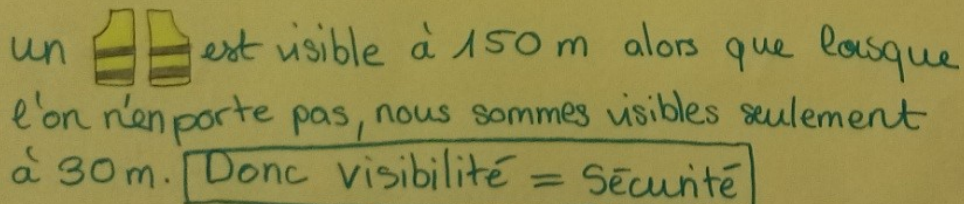 un est visible à 150 m alors que lorsque
l'on n'en porte pas, nous sommes visibles seulement
à 30 m. Donc visibilité = Sécurité